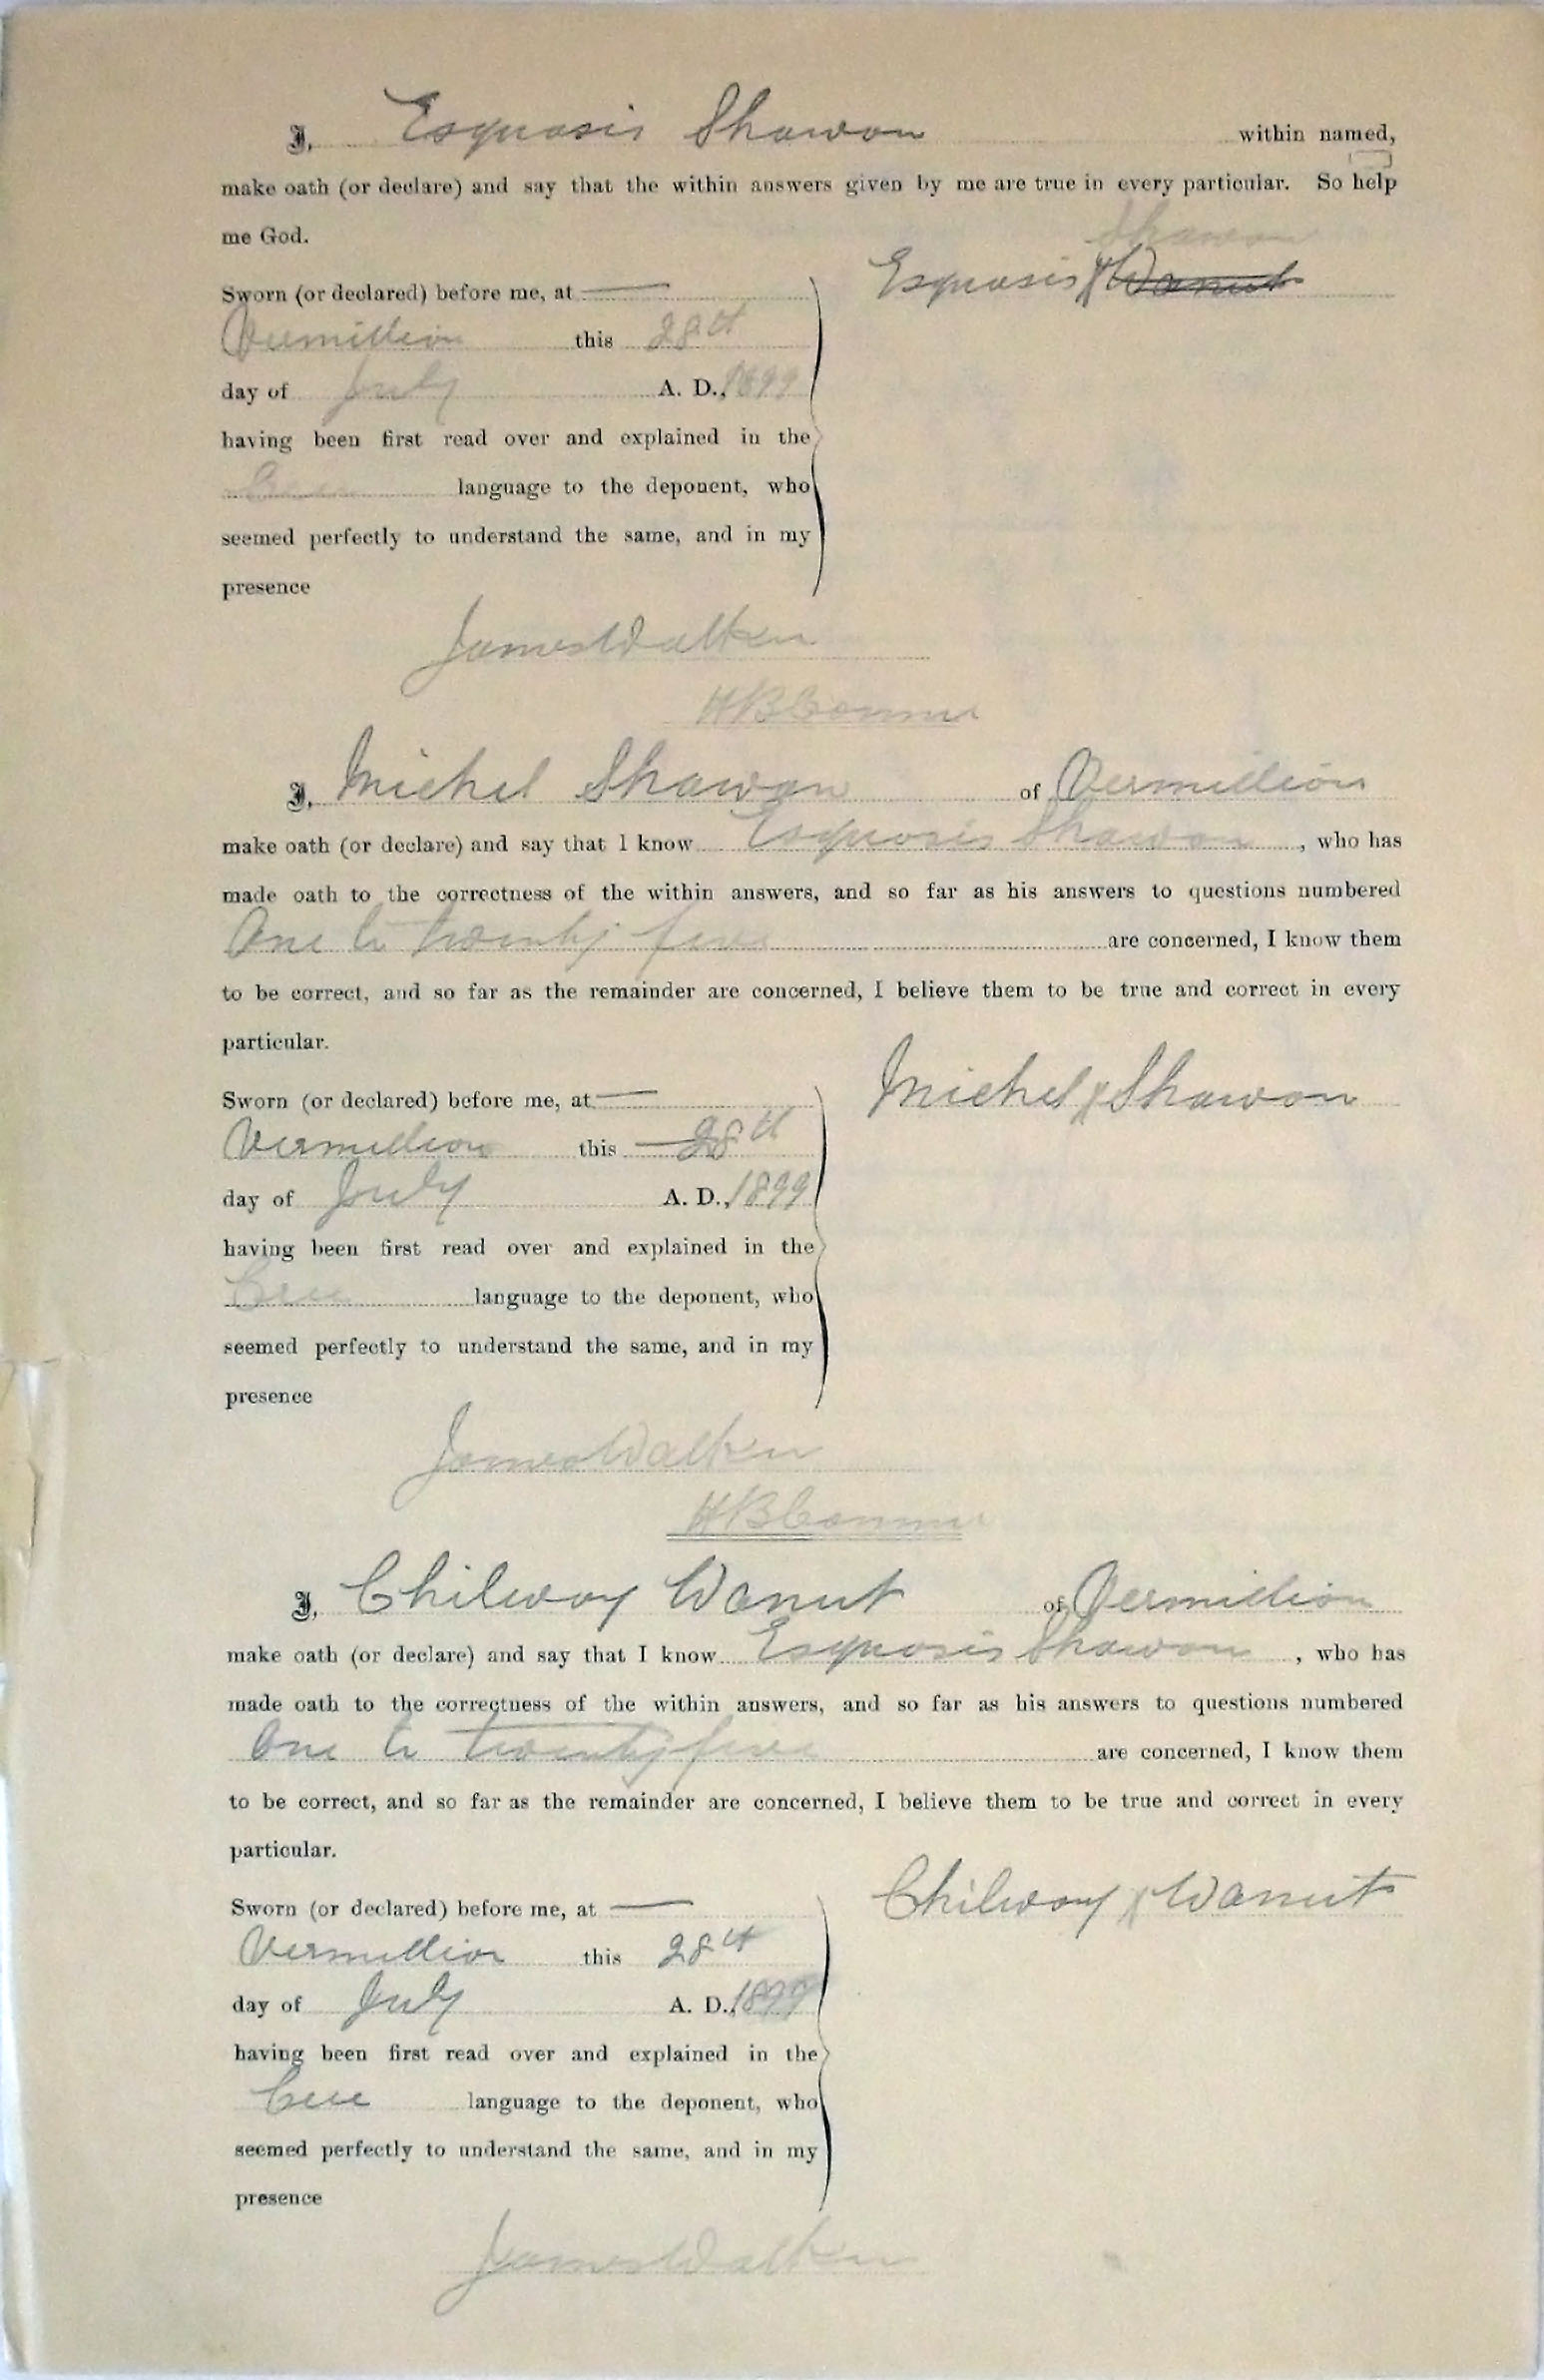 I, Esquasis Shawon within named,
make oath (or declare) and say that the within answers given by me are true in every particular. So help
me God.
Shawon
Esquasis X Wanut
Sworn (or declared) before me, at
Vermillion this 28th
day of July A. D., 1899
having been first read over and explained in the
Cree language to the deponent, who
seemed perfectly to understand the same, and in my
presence
James Walker
HB Commr
I, Michel Shawon of Vermillion
make oath (or declare) and say that I know Esquasis Shawon, who has
made oath to the correctness of the within answers, and so far as his answers to questions numbered
One to twenty five are concerned, I know them
to be correct, and so far as the remainder are concerned, I believe them to be true and correct in every
particular.
Michel X Shawon
Sworn (or declared) before me, at
Vermillion this 28th
day of July A. D., 1899
having been first read over and explained in the
Cree language to the deponent, who
seemed perfectly to understand the same, and in my
presence
James Walker
HB Commr
I, Chilwoy Wanut of Vermillion
make oath (or declare) and say that I know Esquasis Shawon, who has
made oath to the correctness of the within answers, and so far as his answers to questions numbered
One to twenty five are concerned, I know them
to be correct, and so far as the remainder are concerned, I believe them to be true and correct in every
particular.
Chilwoy X Wanut
Sworn (or declared) before me, at
Vermillion this 28th
day of July A. D., 1899
having been first read over and explained in the
Cree language to the deponent, who
seemed perfectly to understand the same, and in my
presence
James Walker